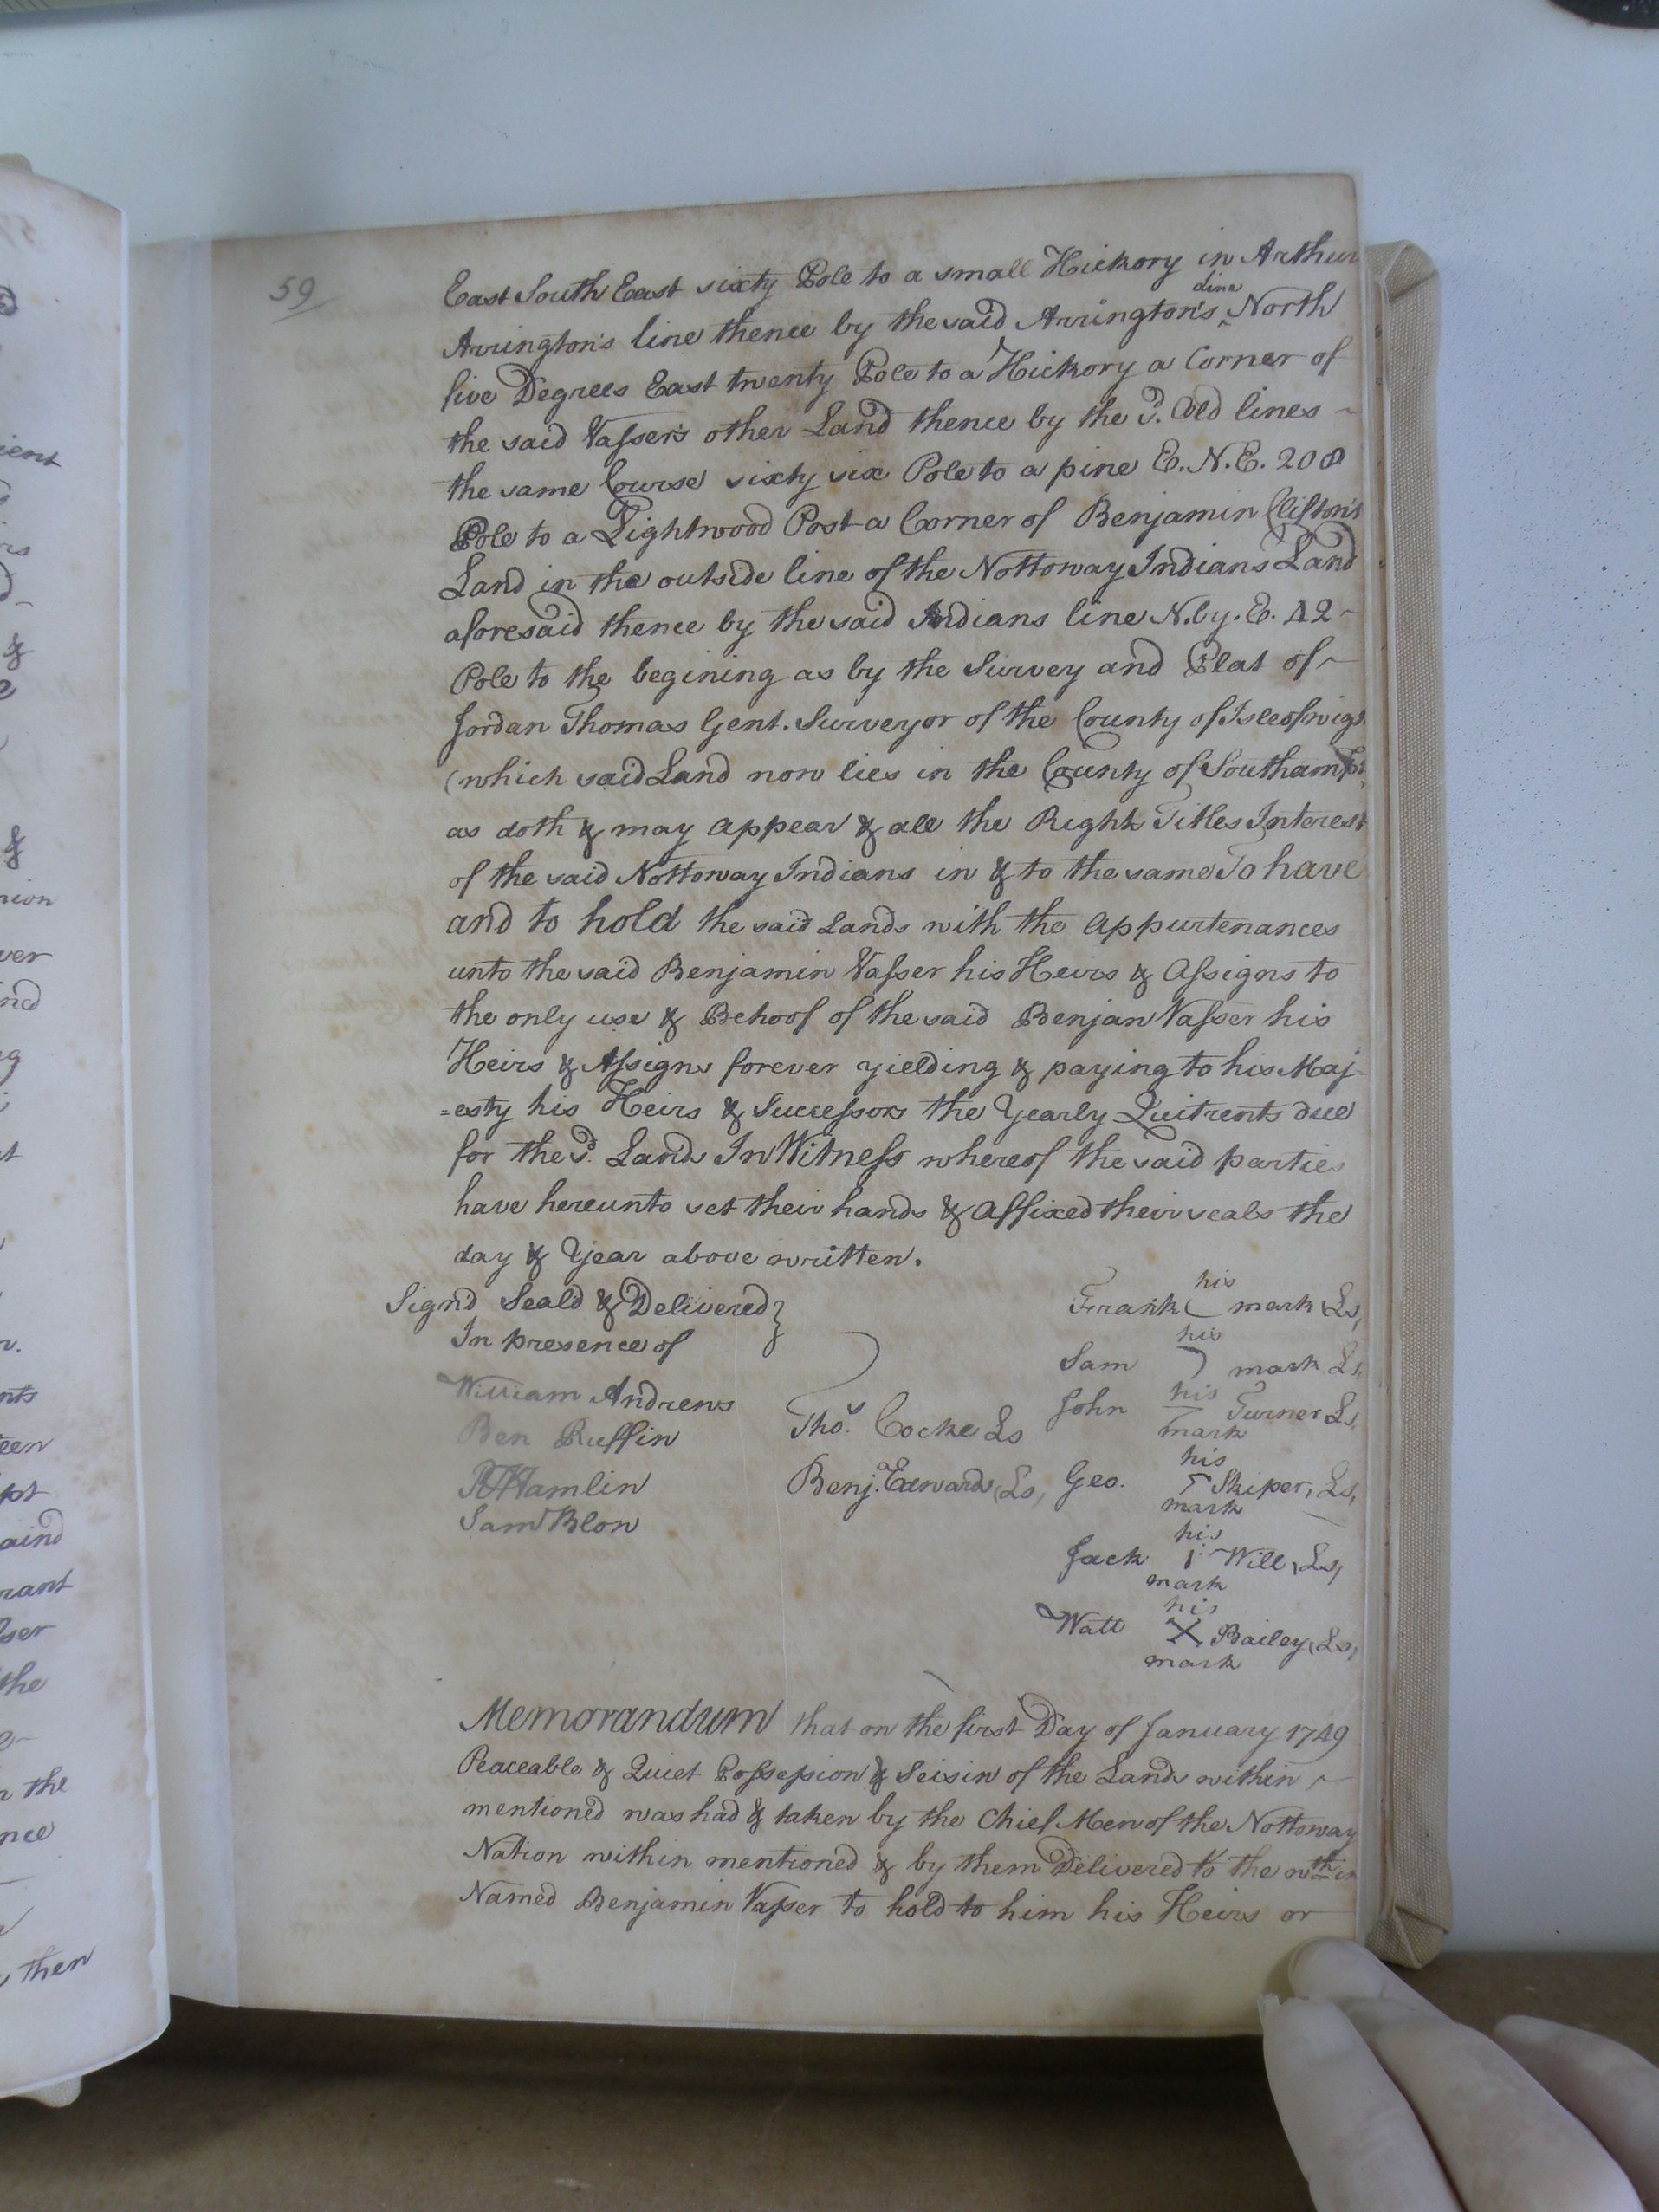 59
East South East sixty Pole to a small Hickory in Arthur
Arrington's line thence by the said Arrington's line North
five Degrees East twenty Pole to a Hickory a Corner of
the said Vasser's other Land thence by the sd. Old lines
the same Course sixty six Pole to a pine E.N.E. 200
Pole to a Lightwood Post a Corner of Benjamin Clifton's
Land in the outside line of the Nottoway Indians Land
aforesaid thence by the said Indians line N.by.E. 42
Pole to the begining as by the Survey and Plat of
Jordan Thomas Gent. Surveyor of the County of Isleofwigt.
(which said Land now lies in the County of Southampt.
as doth & may appear & all the Right Titles Interest
of the said Nottoway Indians in & to the same To have
and to hold the said Lands with the appurtenances
unto the said Benjamin Vasser his Heirs & Assigns to
the only use & Behoof of the said Benjan Vasser his
Heirs & Assigns forever yielding & paying to his Maj-
=esty his Heirs & Successors the Yearly Quitrents due
for the sd. Lands In Witness whereof the said parties
have hereunto set their hands & affixed their seals the
day & Year above written.
Signd Seald & Delivered
In presence of
William Andrews
Ben Ruffin
Hamlin
Sam Blon
Thos. Cocke Ls
Benj. Edwards Ls,
his
Frank mark Ls,
his
Sam mark Ls,
his
John Turner Ls,
mark
his
Geo. Skiper, Ls,
mark
his
Jack Will, Ls,
mark
his
Watt X Bailey, Ls,
mark
Memorandum that on the first Day of January 1749
Peaceable & Quiet Possession & Seisin of the Lands within
mentioned was had & taken by the Chief Men of the Nottoway
Nation within mentioned & by them Delivered to the wthin
Named Benjamin Vasser to hold to him his Heirs or
ient
rs
&
&
nion
ver
nd
eg
nts
teen
pt
aind
rant
the
n the
nce
then